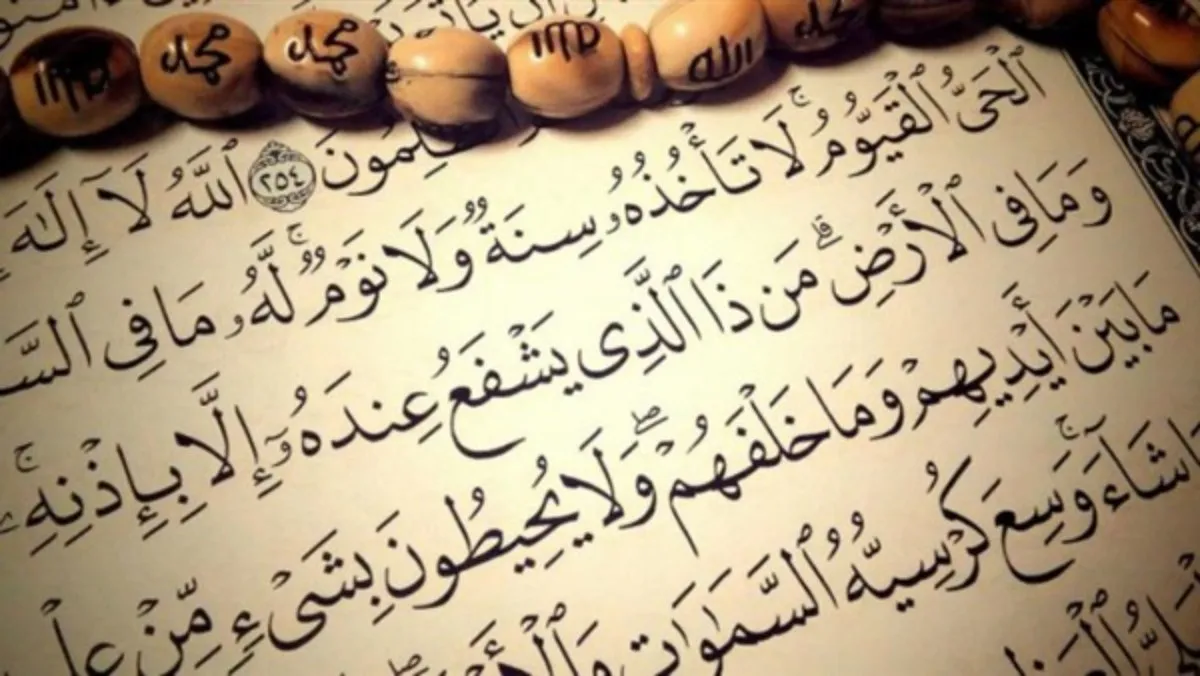 محمد محمد الله
لِمُونَ ٢٥٤ ٱللَّهُ لَآ إِلَـٰهَ
ٱلْحَىُّ ٱلْقَيُّومُ ۚ لَا تَأْخُذُهُۥ سِنَةٌ وَلَا نَوْمٌ ۚ لَّهُۥ مَا فِى ٱلسَّ
وَمَا فِى ٱلْأَرْضِ ۗ مَن ذَا ٱلَّذِى يَشْفَعُ عِندَهُۥٓ إِلَّا بِإِذْنِهِۦ ۚ
مَا بَيْنَ أَيْدِيهِمْ وَمَا خَلْفَهُمْ ۖ وَلَا يُحِيطُونَ بِشَىْءٍ مِّنْ عِلْ
شَآءَ ۚ وَسِعَ كُرْسِيُّهُ ٱلسَّمَـٰوَٰتِ وَٱلْأَ